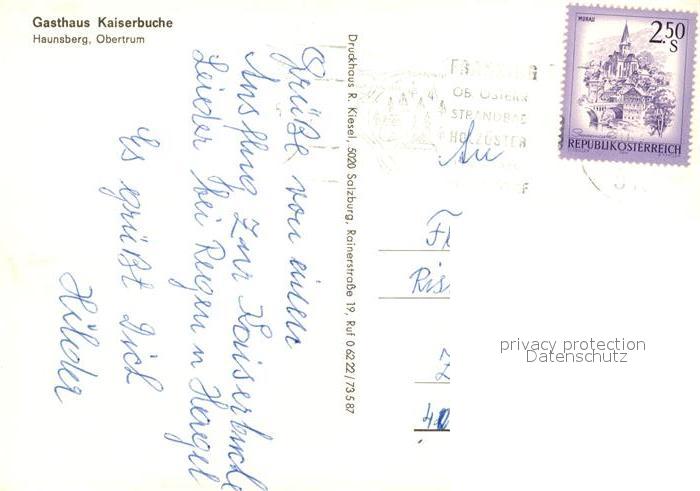 Gasthaus Kaiserbuche
Haunsberg, Obertrum
Grüße von einem
Ausflug zur Kaiserbuche
Leider bei Regen u Hagel
Es grüßt Dich
Druckhaus R. Kiesel, 5020 Salzburg, Rainerstraße 19, Ruf 0 62 22 / 73 5 87
OB. ÖSTERR
STRANDBAD
HOLZÖSTER
MURAU
2.50
S
REPUBLIK ÖSTERREICH
An
Ris
privacy protection
Datenschutz